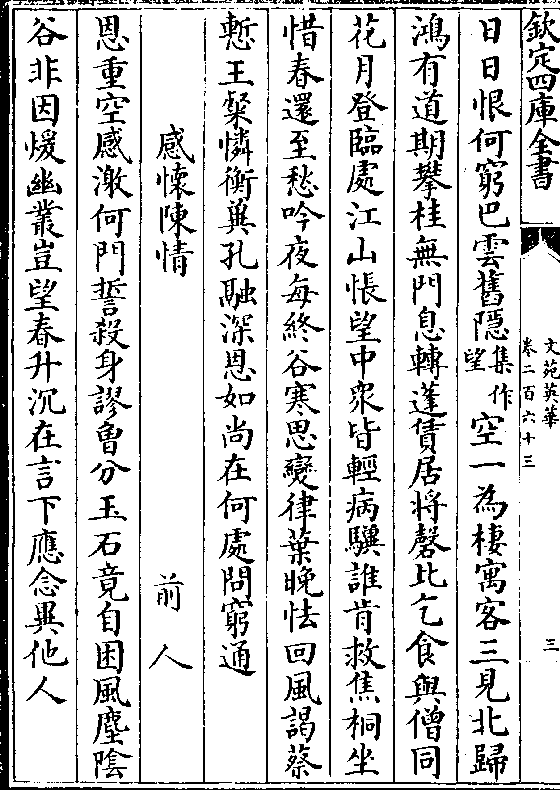 欽定四庫全書
文苑英華
卷二百六十三
三
日日恨何窮巴雲舊隱集作望空一為棲寓客三見北歸
鴻有道期攀桂無門息轉蓬賃居將罄比乞食與僧同
花月登臨處江山悵望中衆皆輕病驥誰肯救焦桐坐
惜春還至愁吟夜每終谷寒思變律葉晚怯回風謁蔡
慙王粲憐衡冀孔融深恩如尚在何處問窮通
感懷陳情 前人
恩重空感激何門誓殺身謬魯分玉石竟自困風塵陰
谷非因煖幽叢豈望春升沉在言下應念異他人